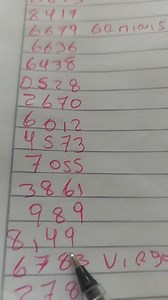 8417
6679 Geminis
6636
6438
0528
2670
6012
4573
7055
3861
989
8,49
6783 Virgo
278